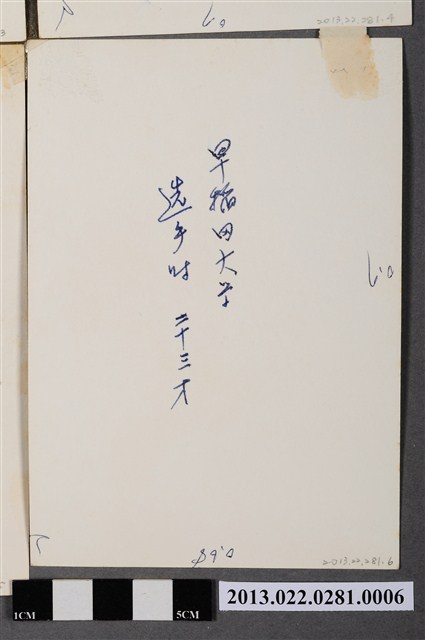 2013.22.281.4
早稲田大学
選手時 二十三才
2013.22.281.6
1CM
5CM
2013.022.0281.0006